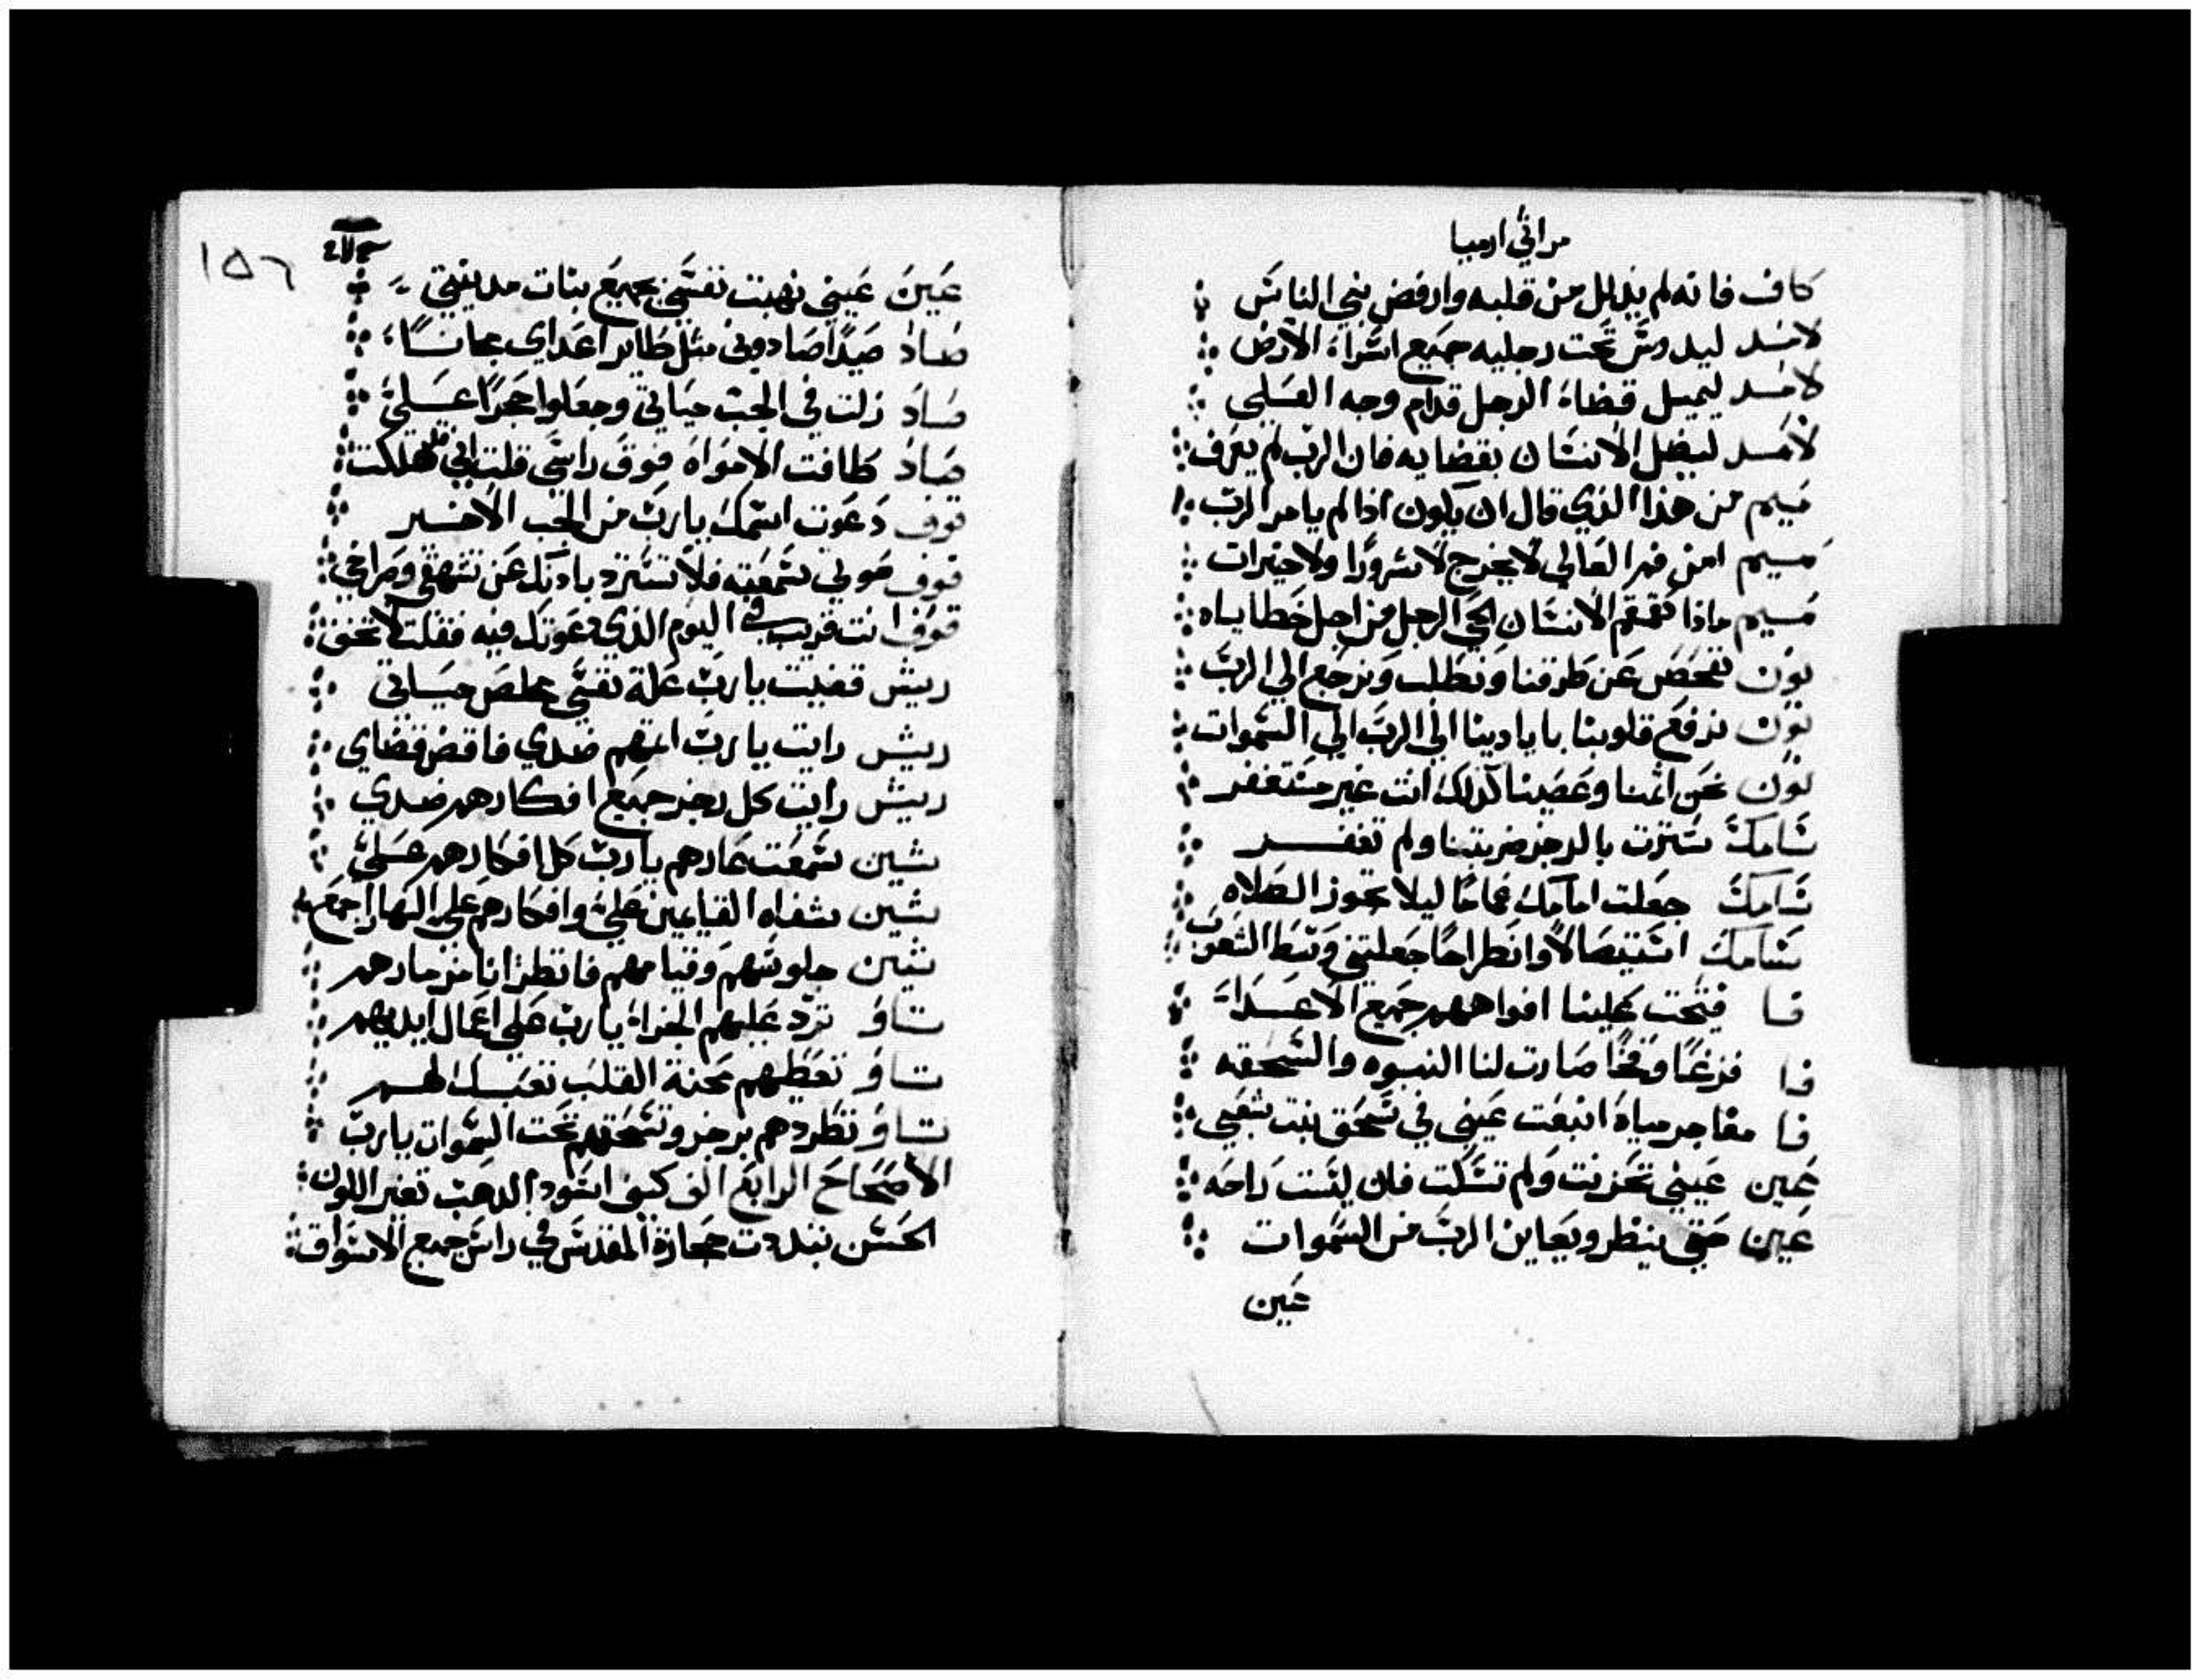 مراثي ارميا
كاف فانه لم يذلل من قلبه وارفض بني الناس
لامد ليدوس تحت رجليه جميع اسراء الارض
لامد ليميل قضاء الرجل قدام وجه العلي
لامد ليضل الانسان بقضايه فان الرب لم يعرف
ميم من هذا الذي قال ان يكون اذا لم يامر الرب
ميم امن فم العالي لا يخرج لا شرورًا ولا خيرات
ميم ماذا تقمقم الانسان الحي الرجل من اجل خطاياه
نون نفحص عن طرقنا ونطلب ونرجع الي الرب
نون نرفع قلوبنا بايادينا الي الرب الي السموات
نون نحن اثمنا وعصينا لذلك انت غير مستغفر
سامك سترت بالرجز ضربتنا ولم تغفر
سامك جعلت امامك غمامًا ليلا تجوز الصلاه
سامك استيصالًا وانطراحًا جعلتني وسط الشعوب
فا فتحت علينا افواههم جميع الاعداء
فا فزعًا وفخًا صارت لنا النبوه والسحقه
فا مفاجر مياه انبعت عيني في سحق بنت شعبي
عين عيني تحزنت ولم تسكت فان ليست راحه
عين حتي ينظر ويعاين الرب من السموات
عين
١٥٦
عين عيني نهبت نفسي بجميع بنات مدينتي
صاد صيدًا صادوني مثل طاير اعداي مجانًا
صاد زلت في الجب حياتي وجعلوا حجرًا علي
صاد طافت الامواه فوق راسي قلت اني هلكت
قوف دعوت اسمك يا رب من الجب الاخير
قوف صوتي سمعته فلا تسترد باذنك عن تنهفي وصراخي
قوف انت قريب في اليوم الذي دعوتك فيه فقلت لا تخف
ريش قضيت يا رب علة نفسي مخلص حياتي
ريش رايت يا رب اثمهم ضدي فاقض قضاي
ريش رايت كل رجز جميع افكارهم ضدي
شين سمعت عارهم يا رب كل افكارهم علي
شين شفاه القيامين علي وافكارهم علي النهار اجمع
شين جلوسهم وقيامهم فانظر انا مزمارهم
تاو ترد عليهم الجزاء يا رب علي اعمال ايديهم
تاو تعطيهم محنة القلب تعبك لهم
تاو تطردهم برجز وتسحقهم تحت السموات يا رب
الاصحاح الرابع الف كيف اسود الدهب تغير اللون
الحسن تبددت حجارة المقدس في راس جميع الاسواق